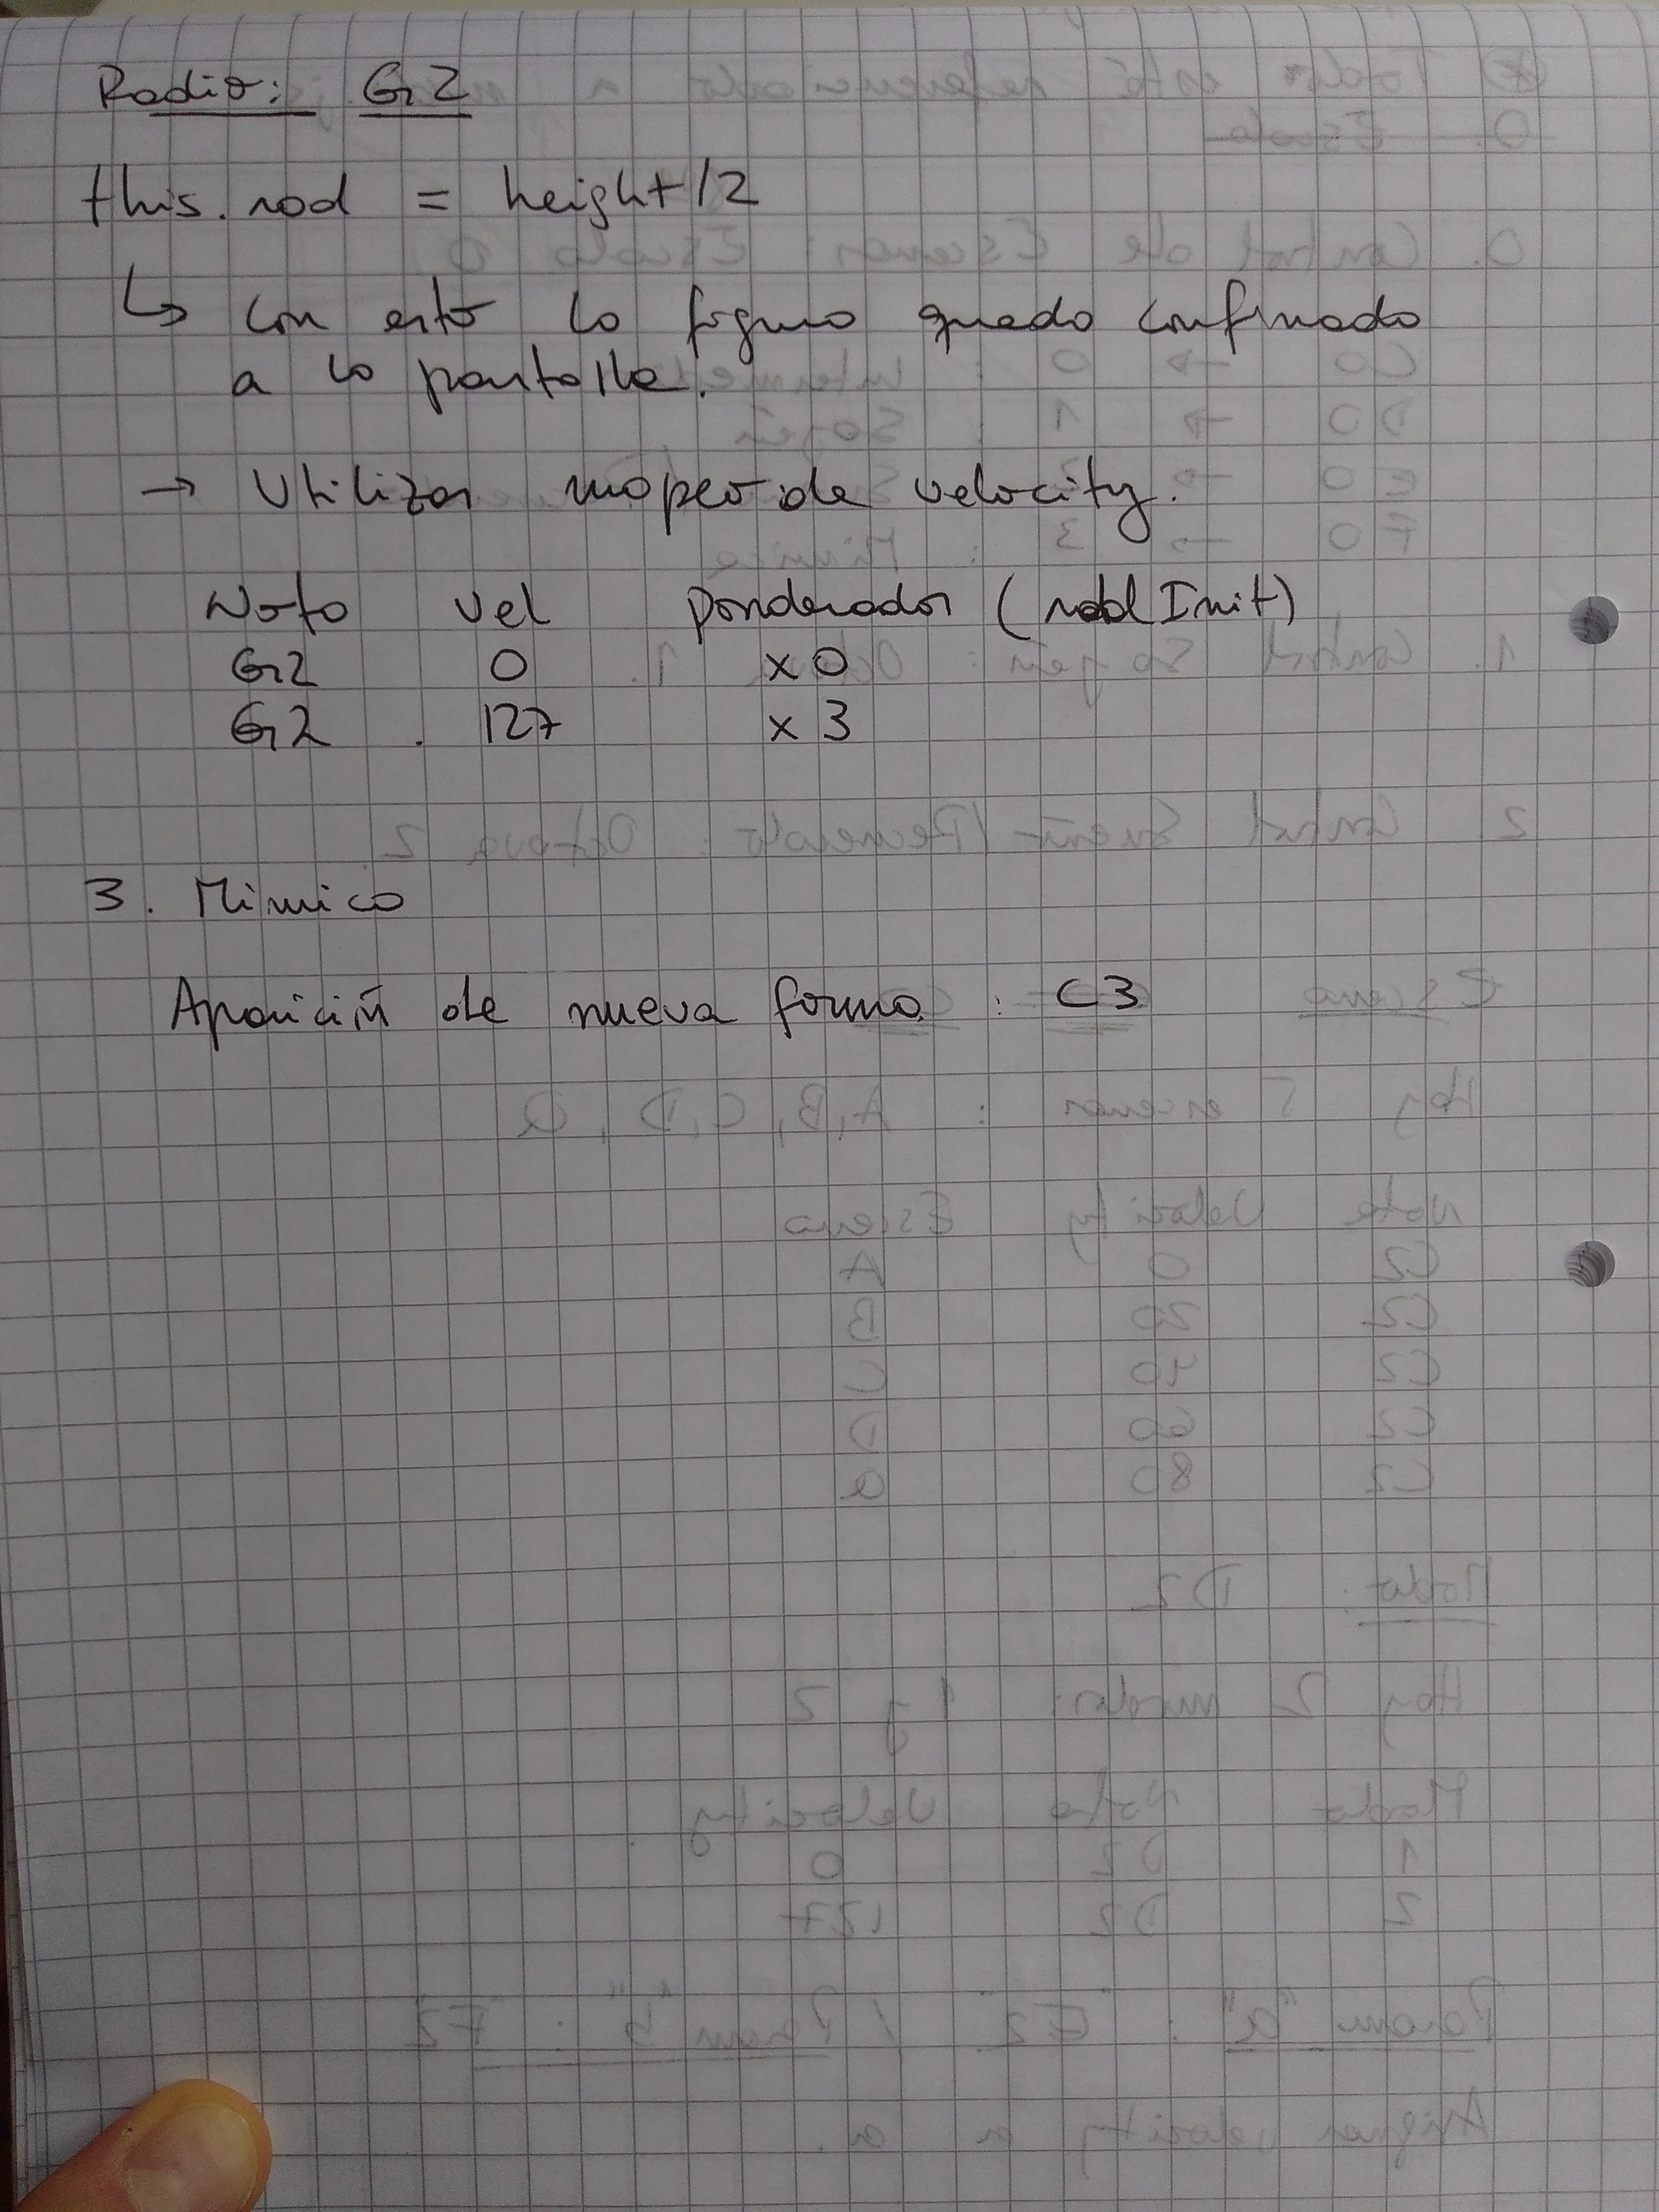 Radio: G2
this.rad = height/2
↳ Con esto la figura queda confinada
a la pantalla.
→ Utilizar mapeo de velocity.
Nota Vel ponderador (radInit)
G2 0 x 0
G2 127 x 3
3. Mimica
Aparición de nueva forma : C3